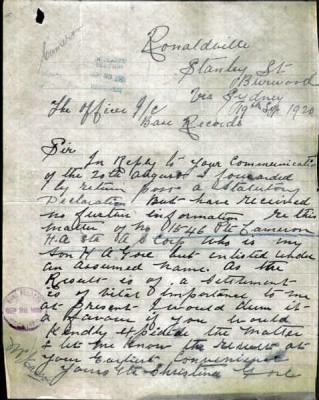 Ronaldville
Stanley St
Burwood
Via Sydney
19th Sep 1920
The Officer I/C
Base Records
Sir
In Reply to Your Communication
of the 20th August I forwarded
by return post a Statutory
Declaration But have received
no further information re this
matter of No 1546 Pte Cameron
H A Corp who is my
Son H A Gore but enlisted under
an assumed name. As the
Results is of a Settlement
is of Vital Importance to me
at Present I would deem it
a Favour if you would
Kindly expidite the Matter
& let me know the results at
your Earliest Convenience
Yours Etc Christina Gore